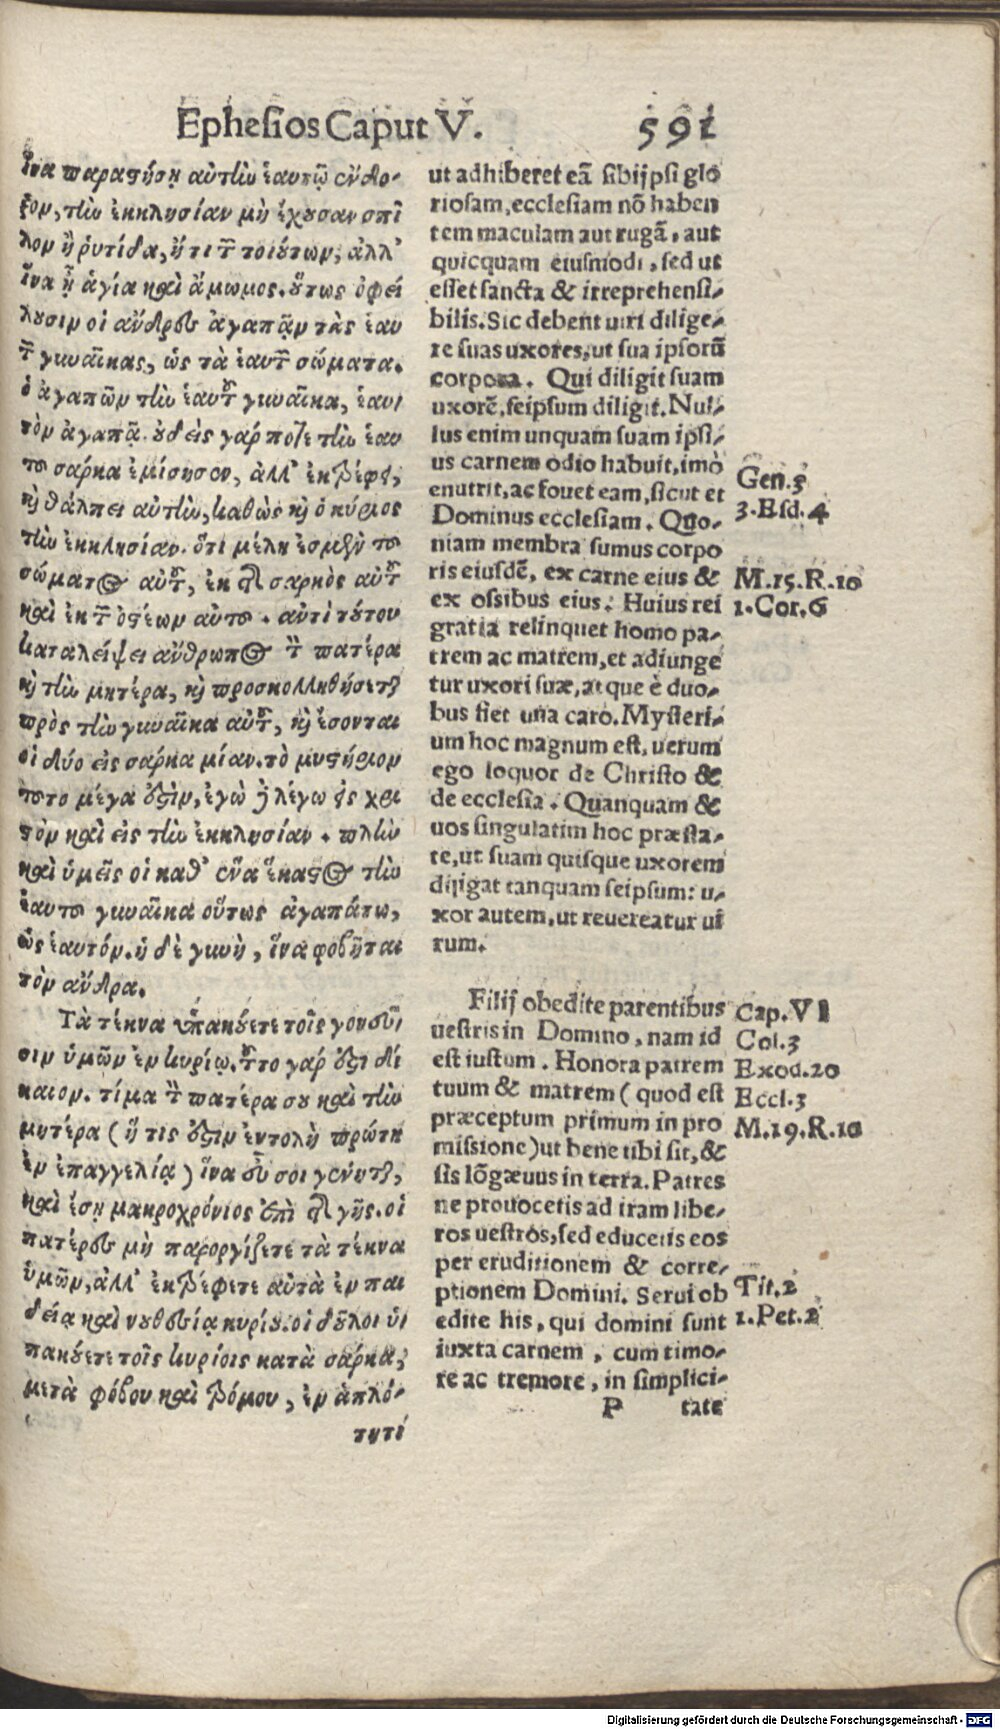 Ephesios Caput V. 591
ἵνα παραστήσῃ αὐτὴν ἑαυτῷ ἔνδο-
ξον, τὴν ἐκκλησίαν μὴ ἔχουσαν σπῖ
λον ἢ ῥυτίδα, ἤ τι τῶν τοιούτων, ἀλλ'
ἵνα ᾖ ἁγία καὶ ἄμωμος. οὕτως ὀφεί
λουσιν οἱ ἄνδρες ἀγαπᾷν τὰς ἑαυ
τῶν γυναῖκας, ὡς τὰ ἑαυτῶν σώματα.
ὁ ἀγαπῶν τὴν ἑαυτοῦ γυναῖκα, ἑαυ
τὸν ἀγαπᾷ. οὐδεὶς γάρ ποτε τὴν ἑαυ
τοῦ σάρκα ἐμίσησεν, ἀλλ' ἐκτρέφει,
καὶ θάλπει αὐτὴν, καθὼς καὶ ὁ κύριος
τὴν ἐκκλησίαν. ὅτι μέλη ἐσμὲν τοῦ
σώματος αὐτοῦ, ἐκ τῆς σαρκὸς αὐτοῦ
καὶ ἐκ τῶν ὀστέων αὐτοῦ. ἀντὶ τούτου
καταλείψει ἄνθρωπος τὸν πατέρα
καὶ τὴν μητέρα, καὶ προσκολληθήσεται
πρὸς τὴν γυναῖκα αὐτοῦ, καὶ ἔσονται
οἱ δύο εἰς σάρκα μίαν. τὸ μυστήριον
τοῦτο μέγα ἐστὶν, ἐγὼ δὲ λέγω εἰς χρι
στὸν καὶ εἰς τὴν ἐκκλησίαν. πλὴν
καὶ ὑμεῖς οἱ καθ' ἕνα ἕκαστος τὴν
ἑαυτοῦ γυναῖκα οὕτως ἀγαπάτω,
ὡς ἑαυτόν. ἡ δὲ γυνὴ, ἵνα φοβῆται
τὸν ἄνδρα.
Τὰ τέκνα ὑπακούετε τοῖς γονεῦ
σιν ὑμῶν ἐν κυρίῳ. τοῦτο γάρ ἐστι δί
καιον. τίμα τὸν πατέρα σου καὶ τὴν
μητέρα (ἥ τις ἐστὶν ἐντολὴ πρώτη
ἐν ἐπαγγελίᾳ) ἵνα εὖ σοι γένηται,
καὶ ἔσῃ μακροχρόνιος ἐπὶ τῆς γῆς. οἱ
πατέρες μὴ παροργίζετε τὰ τέκνα
ὑμῶν, ἀλλ' ἐκτρέφετε αὐτὰ ἐν παι
δείᾳ καὶ νουθεσίᾳ κυρίου. οἱ δοῦλοι ὑ
πακούετε τοῖς κυρίοις κατὰ σάρκα,
μετὰ φόβου καὶ τρόμου, ἐν ἁπλό-
τητί
ut adhiberet eã sibijpsi glo
riosam, ecclesiam nõ haben
tem maculam aut rugã, aut
quicquam eiusmodi, sed ut
esset sancta & irreprehensi-
bilis. Sic debent uiri dilige-
re suas uxores, ut sua ipsorũ
corpora. Qui diligit suam
uxorẽ, seipsum diligit. Nul-
lus enim unquam suam ipsi-
us carnem odio habuit, imò
enutrit, ac fouet eam, sicut et
Dominus ecclesiam. Quo-
niam membra sumus corpo
ris eiusdẽ, ex carne eius &
ex ossibus eius. Huius rei
gratia relinquet homo pa-
trem ac matrem, et adiunge
tur uxori suæ, atque è duo-
bus fiet una caro. Mysteri-
um hoc magnum est, uerum
ego loquor de Christo &
de ecclesia. Quanquam &
uos singulatim hoc præsta-
te, ut suam quisque uxorem
diligat tanquam seipsum: u-
xor autem, ut reuereatur ui
rum.
Filij obedite parentibus
uestris in Domino, nam id
est iustum. Honora patrem
tuum & matrem (quod est
præceptum primum in pro
missione) ut bene tibi sit, &
sis lõgæuus in terra. Patres
ne prouocetis ad iram libe-
ros uestros, sed educetis eos
per eruditionem & corre-
ptionem Domini. Serui ob
edite his, qui domini sunt
iuxta carnem, cum timo-
re ac tremore, in simplici-
P tate
Gen. 3
3. Esd. 4
M. 15. R. 10
1. Cor. 6
Cap. VI
Col. 3
Exod. 20
Eccl. 3
M. 19. R. 10
Tit. 2
1. Pet. 2
Digitalisierung gefördert durch die Deutsche Forschungsgemeinschaft - DFG